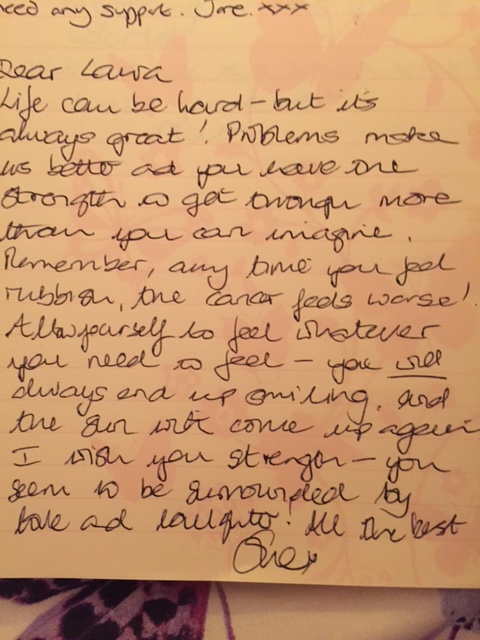 need any support. Jane. xxx
Dear Laura
Life can be hard - but it's
always great! Problems make
us better and you have the
strength to get through more
than you can imagine.
Remember, any time you feel
rubbish, the cancer feels worse!
Allow yourself to feel whatever
you need to feel - you will
always end up smiling. And
the sun will come up again
I wish you strength - you
seem to be surrounded by
love and laughter! All the best